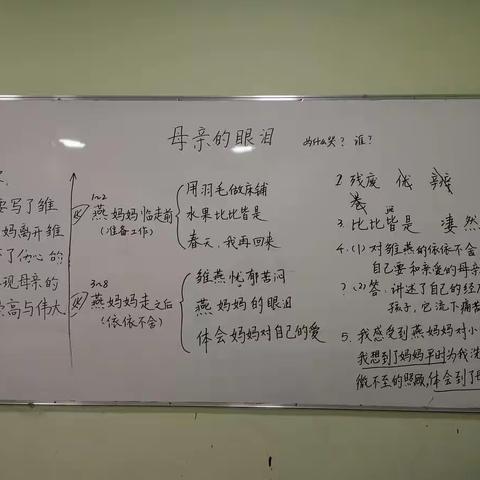 母亲的眼泪
为什么哭？谁？
要写了雏
妈离开雏
了伤心的
现母亲的
崇高与伟大
1~2
燕妈妈临走前
(准备工作)
用羽毛做床铺
水果比比皆是
春天，我再回来
3~8
燕妈妈走之后
(依依不舍)
雏燕忧郁苦闷
燕妈妈的眼泪
体会妈妈对自己的爱
2. 残废 优
3. 比比皆是 凄然
4. (1) 对雏燕的依依不舍
自己要和亲爱的母亲
(2) 答，讲述了自己的经历
孩子，它流下痛苦
5. 我感受到燕妈妈对小
我想到了妈妈平时为我洗
微不至的照顾，体会到了